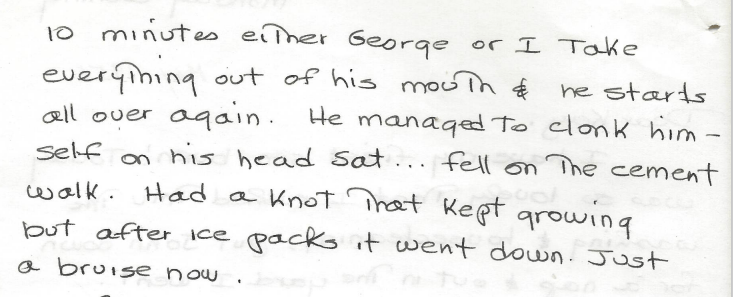 10 minutes either George or I Take
everything out of his mouth & he starts
all over again. He managed to clonk him -
self on his head Sat... fell on the cement
walk. Had a knot that kept growing
but after ice packs it went down. Just
a bruise now.